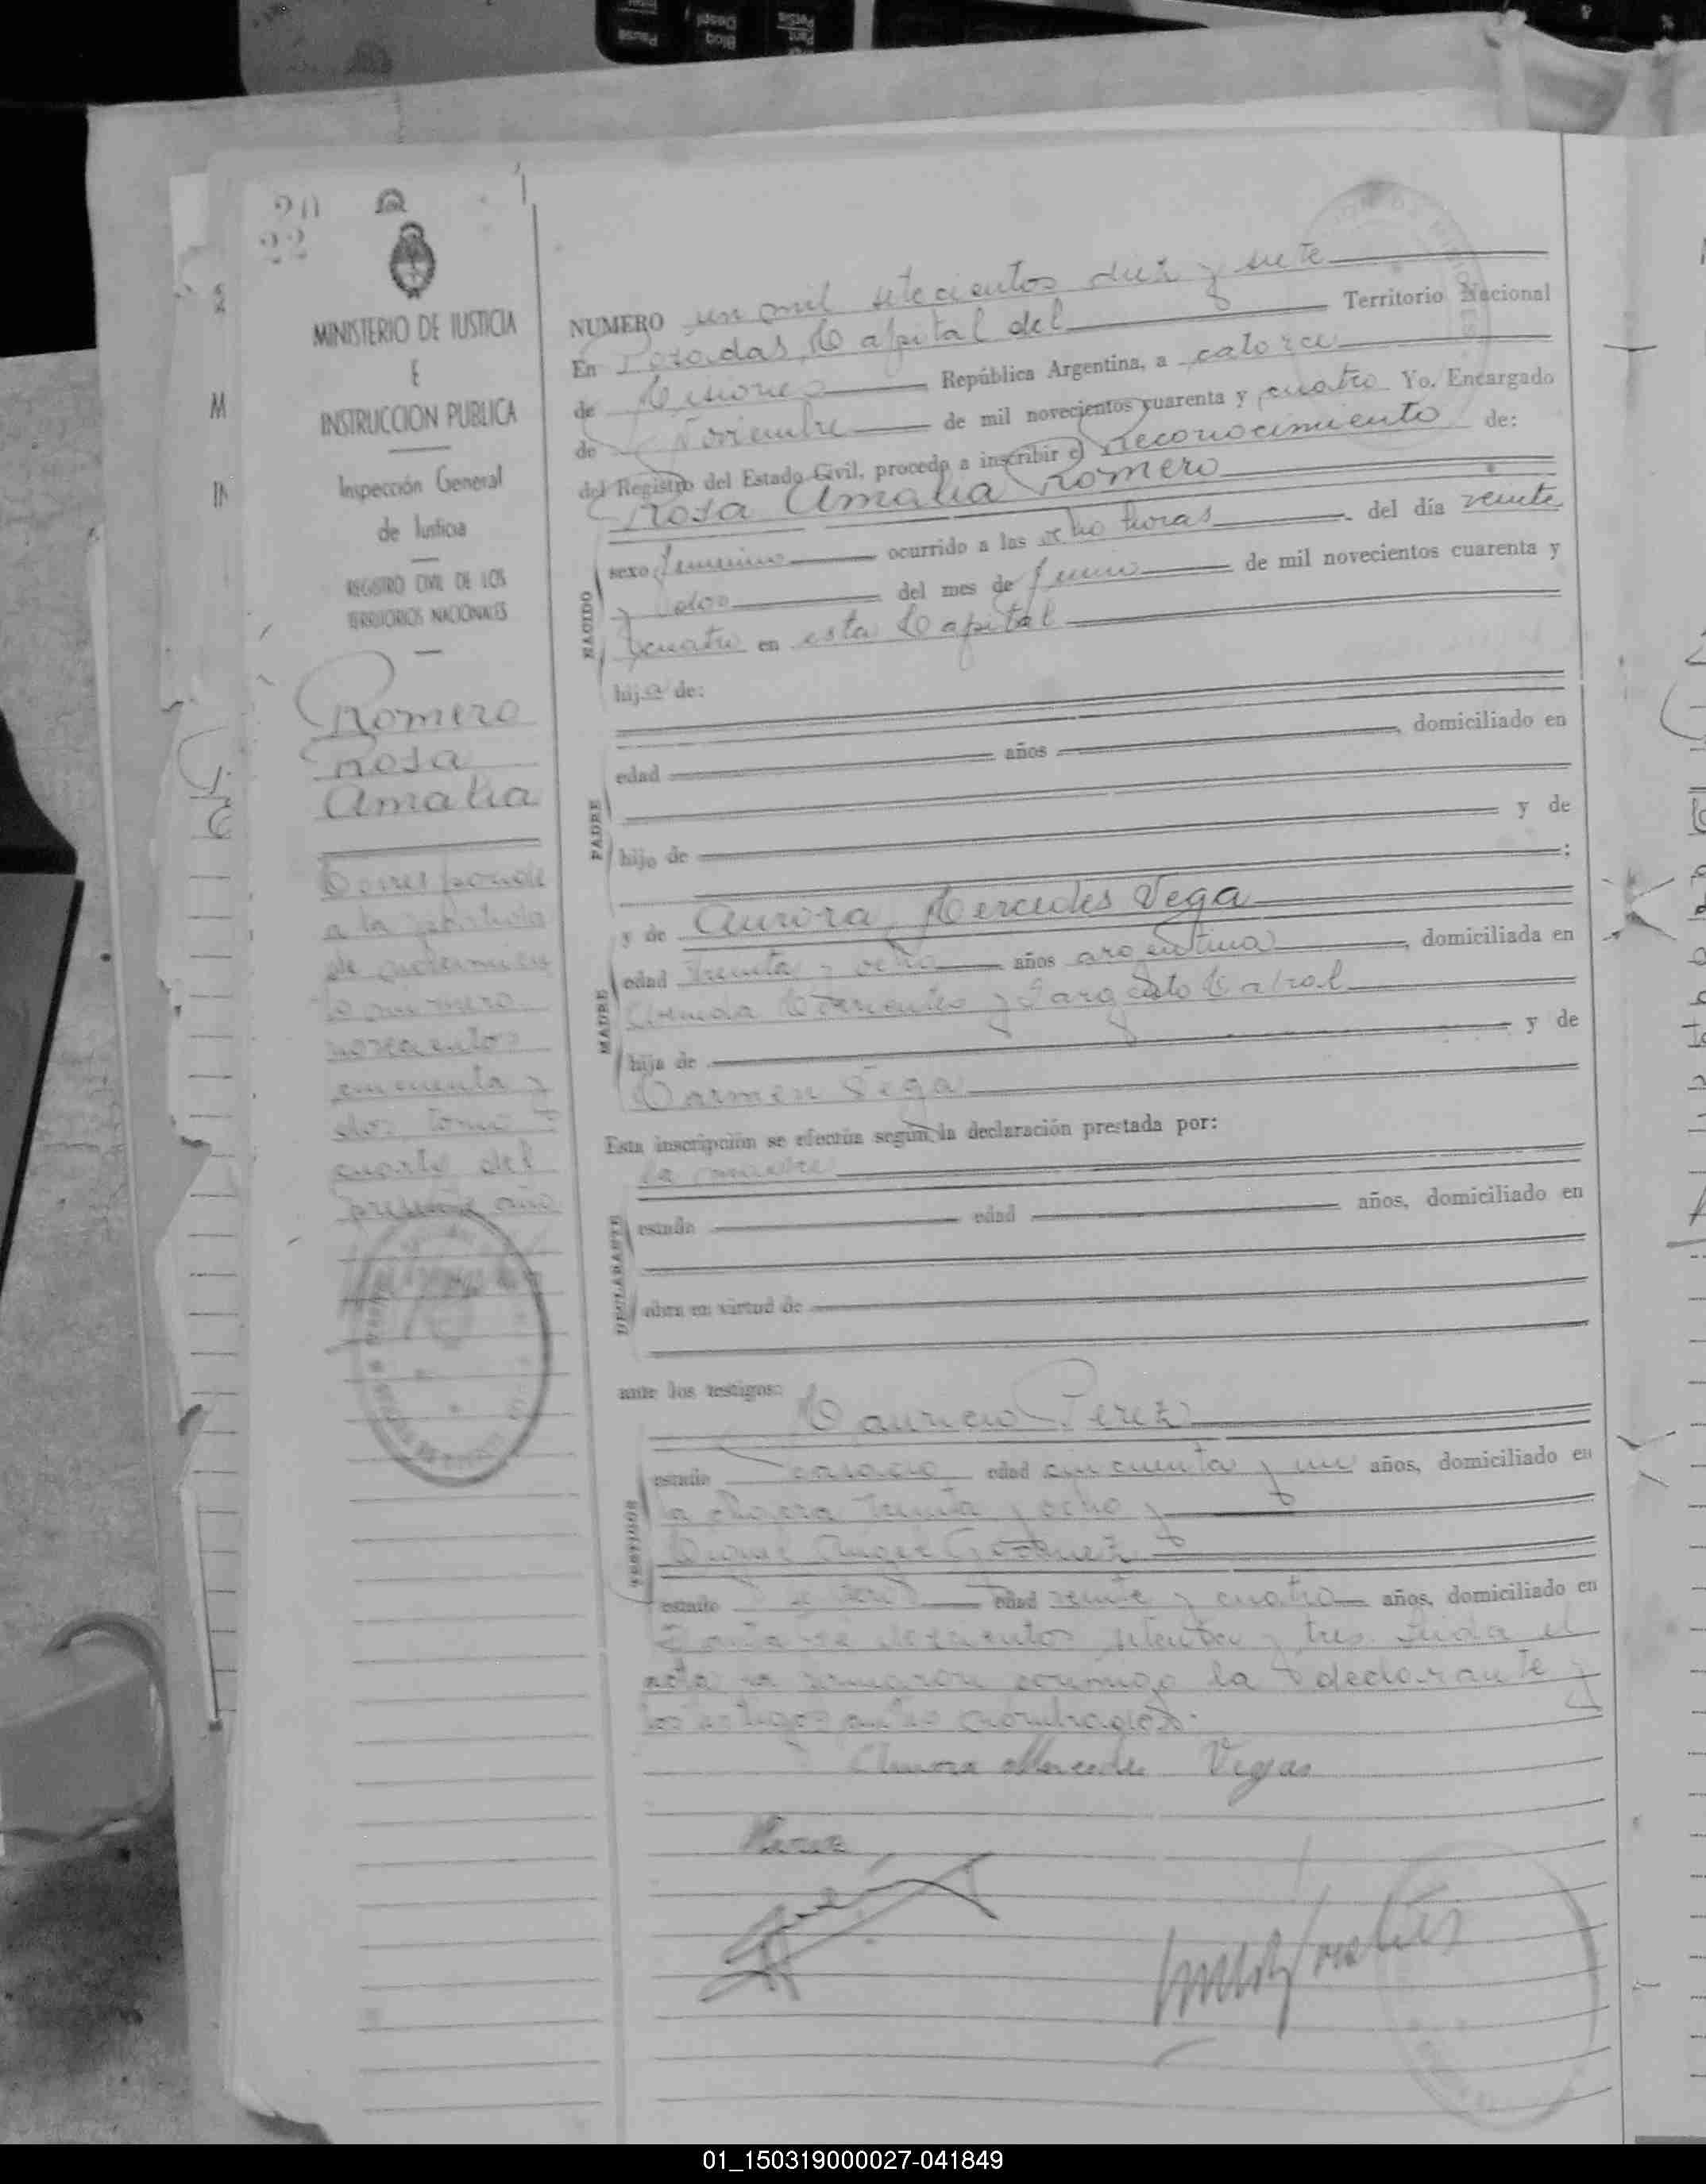 20
22
MINISTERIO DE JUSTICIA
E
INSTRUCCION PUBLICA
Inspección General
de Justicia
REGISTRO CIVIL DE LOS
TERRITORIOS NACIONALES
Romero
Rosa
Amalia
Corresponde
a la
de
to numero
novecientos
cincuenta y
dos tomo
cuarto del
presente año
NUMERO un mil setecientos diez y siete
En Posadas, Capital del Territorio Nacional
de Misiones República Argentina, a catorce
de Noviembre de mil novecientos cuarenta y cuatro Yo, Encargado
del Registro del Estado Civil, procedo a inscribir el reconocimiento de:
Rosa Amalia Romero
NACIDO
sexo femenino ocurrido a las ocho horas del día veinte
y dos del mes de Junio de mil novecientos cuarenta y
cuatro en esta Capital
hija de:
PADRE
edad años , domiciliado en
hijo de y de
:
MADRE
y de Aurora Mercedes Vega
edad treinta y ocho años argentina , domiciliada en
Corrientes y Sargento Cabral
hija de y de
Carmen Vega
Esta inscripción se efectúa según la declaración prestada por:
la madre
DECLARANTE
estado edad años, domiciliado en
obra en virtud de
ante los testigos:
Mauricio Perez
TESTIGOS
estado casado edad cincuenta y un años, domiciliado en
la chacra treinta y ocho y
Miguel Angel
estado edad veinte y cuatro años, domiciliado en
setenta y tres. Leida el
acta la firmaron conmigo la declarante y
los testigos nombrados.
Aurora Mercedes Vegas
Perez
01_150319000027-041849